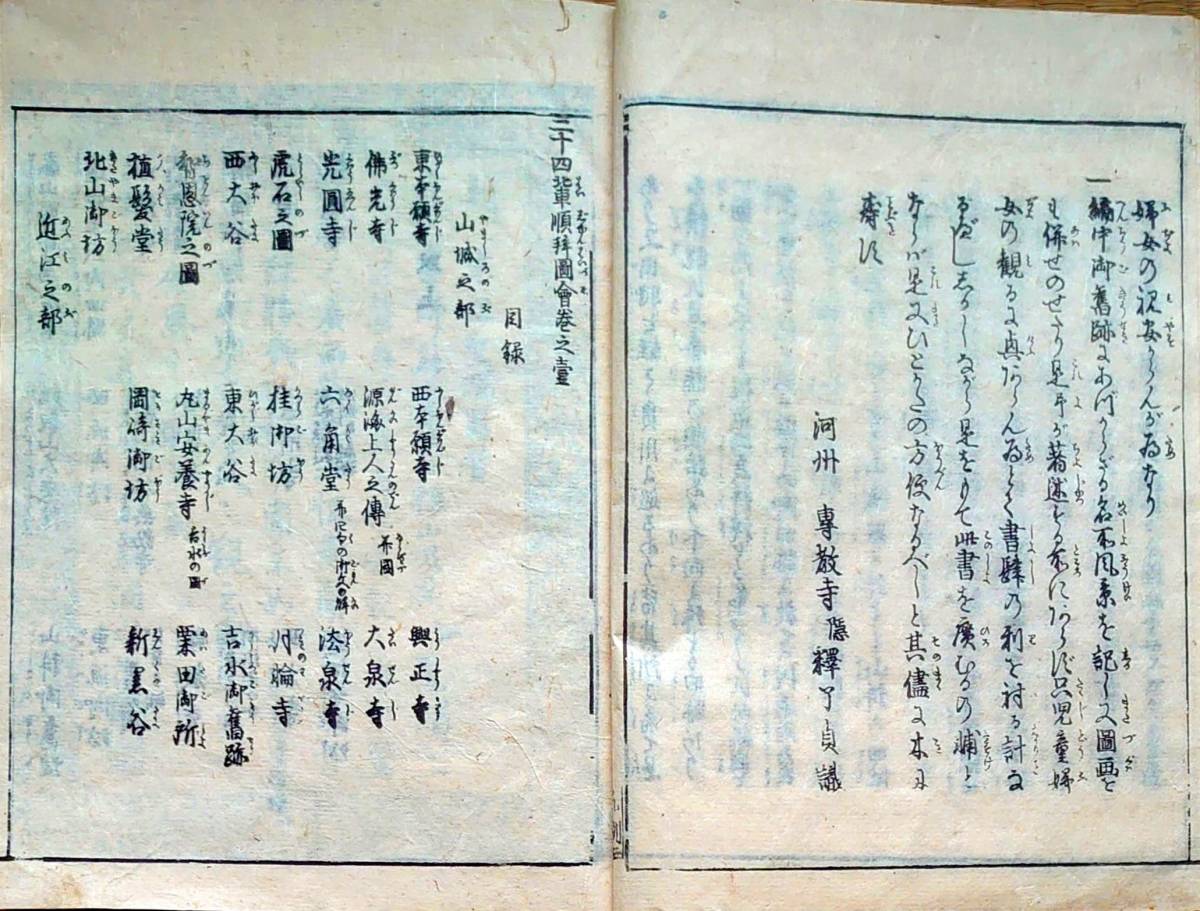 婦女の視安からんが為なり
一編中御舊跡にあづからざる名所風景を記し又圖画を
も併せのせたり是予が著述する所にあらず只児童婦
女の観るに興あらんゐとて書肆の利を討る計な
るべししかしながら是をもて此書を廣むるの輔と
ならバ是又ひとつの方便なるべしと其儘に木に
壽す
河州 專教寺隱釋了貞識
二十四輩順拜圖會卷之壹
目録
山城之部
東本願寺 西本願寺 興正寺
佛光寺 源海上人之傳 并図 大泉寺
光圓寺 六角堂 法泉寺
虎石之圖 桂御坊 月輪寺
西大谷 東大谷 吉水御舊跡
智恩院之圖 丸山安養寺 吉水の図 粟田御所
植髪堂 岡崎御坊 新黒谷
北山御坊
近江之部